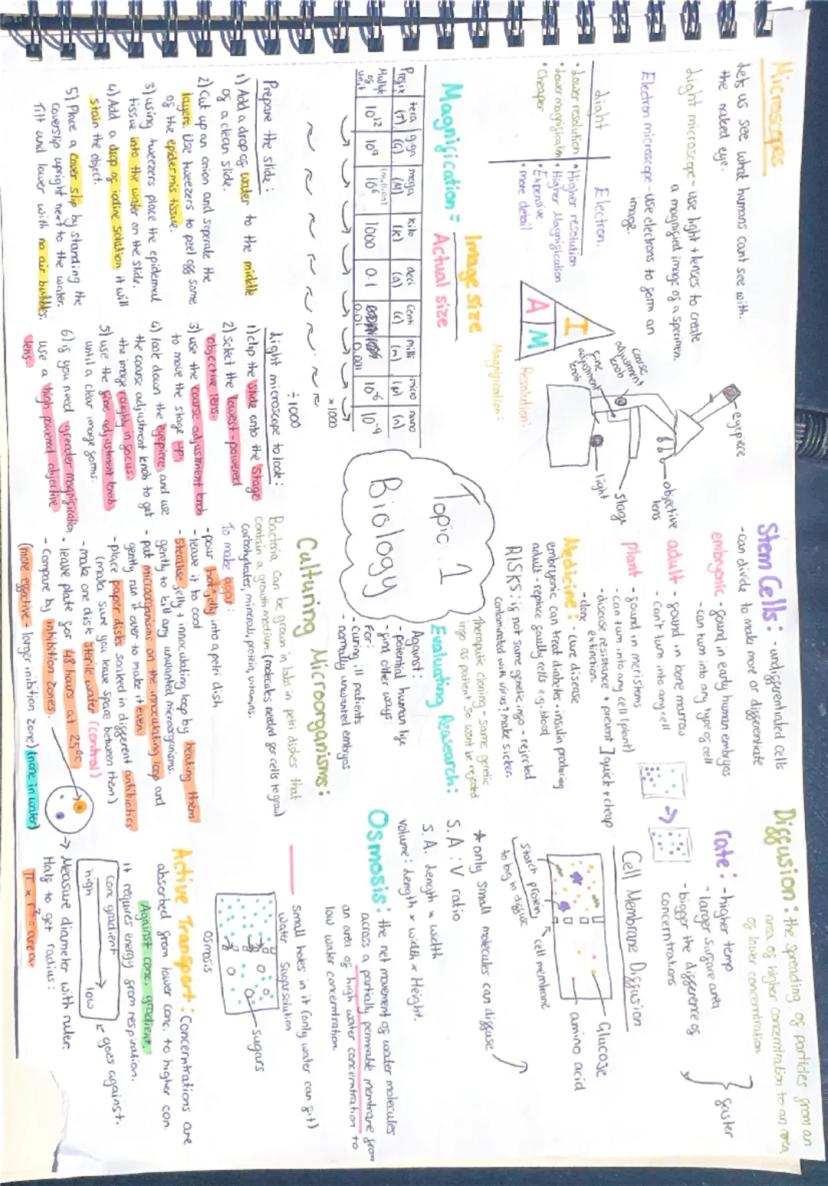 Microscopes
Lets us see what humans cant see with
the naked eye.
Light microscope - use light + lenses to create
a magnified image of a specimen.
Electron microscope - use electrons to form an
image.
Light
• Lower resolution
• Lower magnification
• Cheaper
Electron.
• Higher resolution
• Higher Magnification
• Expensive
• more detail
I
A M
eyepiece
coarse
adjustment
knob
fine
adjustment
knob
objective
lens
stage
light
Resolution:
Magnification:
Magnification = Image size
Actual size
Prefix tera (T) giga (G) mega (M) kilo (k) deci (d) centi (c) milli (m) micro (μ) nano (n)
Multiple of unit 10¹² 10⁹ 10⁶ (million) 1000 0.1 0.01 0.001 10⁻⁶ 10⁻⁹
×1000
÷1000
Prepare the slide:
1) Add a drop of water to the middle
of a clean slide.
2) Cut up an onion and seperate the
layers. Use tweezers to peel off some
of the epidermis tissue.
3) using tweezers place the epidermal
tissue into the water on the slide.
4) Add a drop of iodine solution it will
stain the object.
5) Place a cover slip by standing the
coverslip upright next to the water.
Tilt and lower with no air bubbles.
Light microscope to look:
1) clip the slide onto the stage
2) select the lowest-powered
objective lens
3) use the coarse adjustment knob
to move the stage up
4) look down the eyepiece and use
the coarse adjustment knob to get
the image roughly in focus
5) use the fine adjustment knob
until a clear image forms.
6) if you need greater magnification
use a high powered objective
lens
Topic 1
Biology
Stem Cells: - undifferentiated cells
- can divide to make more or differentiate
embryonic - found in early human embryos
- can turn into any type of cell
adult - found in bone marrow
- can't turn into any cell
plant - found in meristems
- can turn into any cell (plant)
- disease resistance + prevent extinction
- clone
quick + cheap
Medicine: - cure disease
embryonic can treat diabetes - insulin producing
adult - replace faulty cells e.g. blood
RISKS: is not same genetic info - rejected
contaminated with virus: make sicker.
Theraputic cloning - same genetic
info as patient so won't be rejected
Evaluating Research:
Against:
- potential human life
- find other ways
For:
- curing ill patients
- normally unwanted embryos
Culturing Microorganisms:
Bacteria can be grown in lab in petri dishes that
contain a growth medium (molecules needed for cells to grow)
carbohydrates, minerals, protein, vitamins.
To make agar:
- pour hot jelly into a petri dish
- leave it to cool
- sterilise jelly + innoculating loop by heating them
gently to kill any unwanted microorganisms.
- put microorganisms on the innoculating loop and
gently run it over to make it even
- place paper disks soaked in different antibiotics
(make sure you leave space between them)
- make one disk sterile water (control)
- leave plate for 48 hours at 25°C
- Compare by inhibition zones.
(more effective - larger inibition zone) (none in water)
→ Measure diameter with ruler.
Half to get radius:
π × r² = area
Diffusion: the spreading of particles from an
area of higher concentration to an area
of lower concentration
rate: - higher temp
- larger surface area
- bigger the difference of
concentrations
faster
Cell Membrane Diffusion
Glucose
amino acid
cell membrane
starch protein
to big to diffuse
* only small molecules can diffuse
S.A : V ratio
S.A. Length × width
Volume: Length × width × Height.
Osmosis: the net movement of water molecules
across a partially permeable membrane from
an area of high water concentration to
low water concentration.
small holes in it (only water can fit)
water
sugar solution
sugars
osmosis
Active Transport: Concentrations are
absorbed from lower conc. to higher con
Against conc. gradient.
it requires energy from respiration.
conc gradient
high
low
goes against.